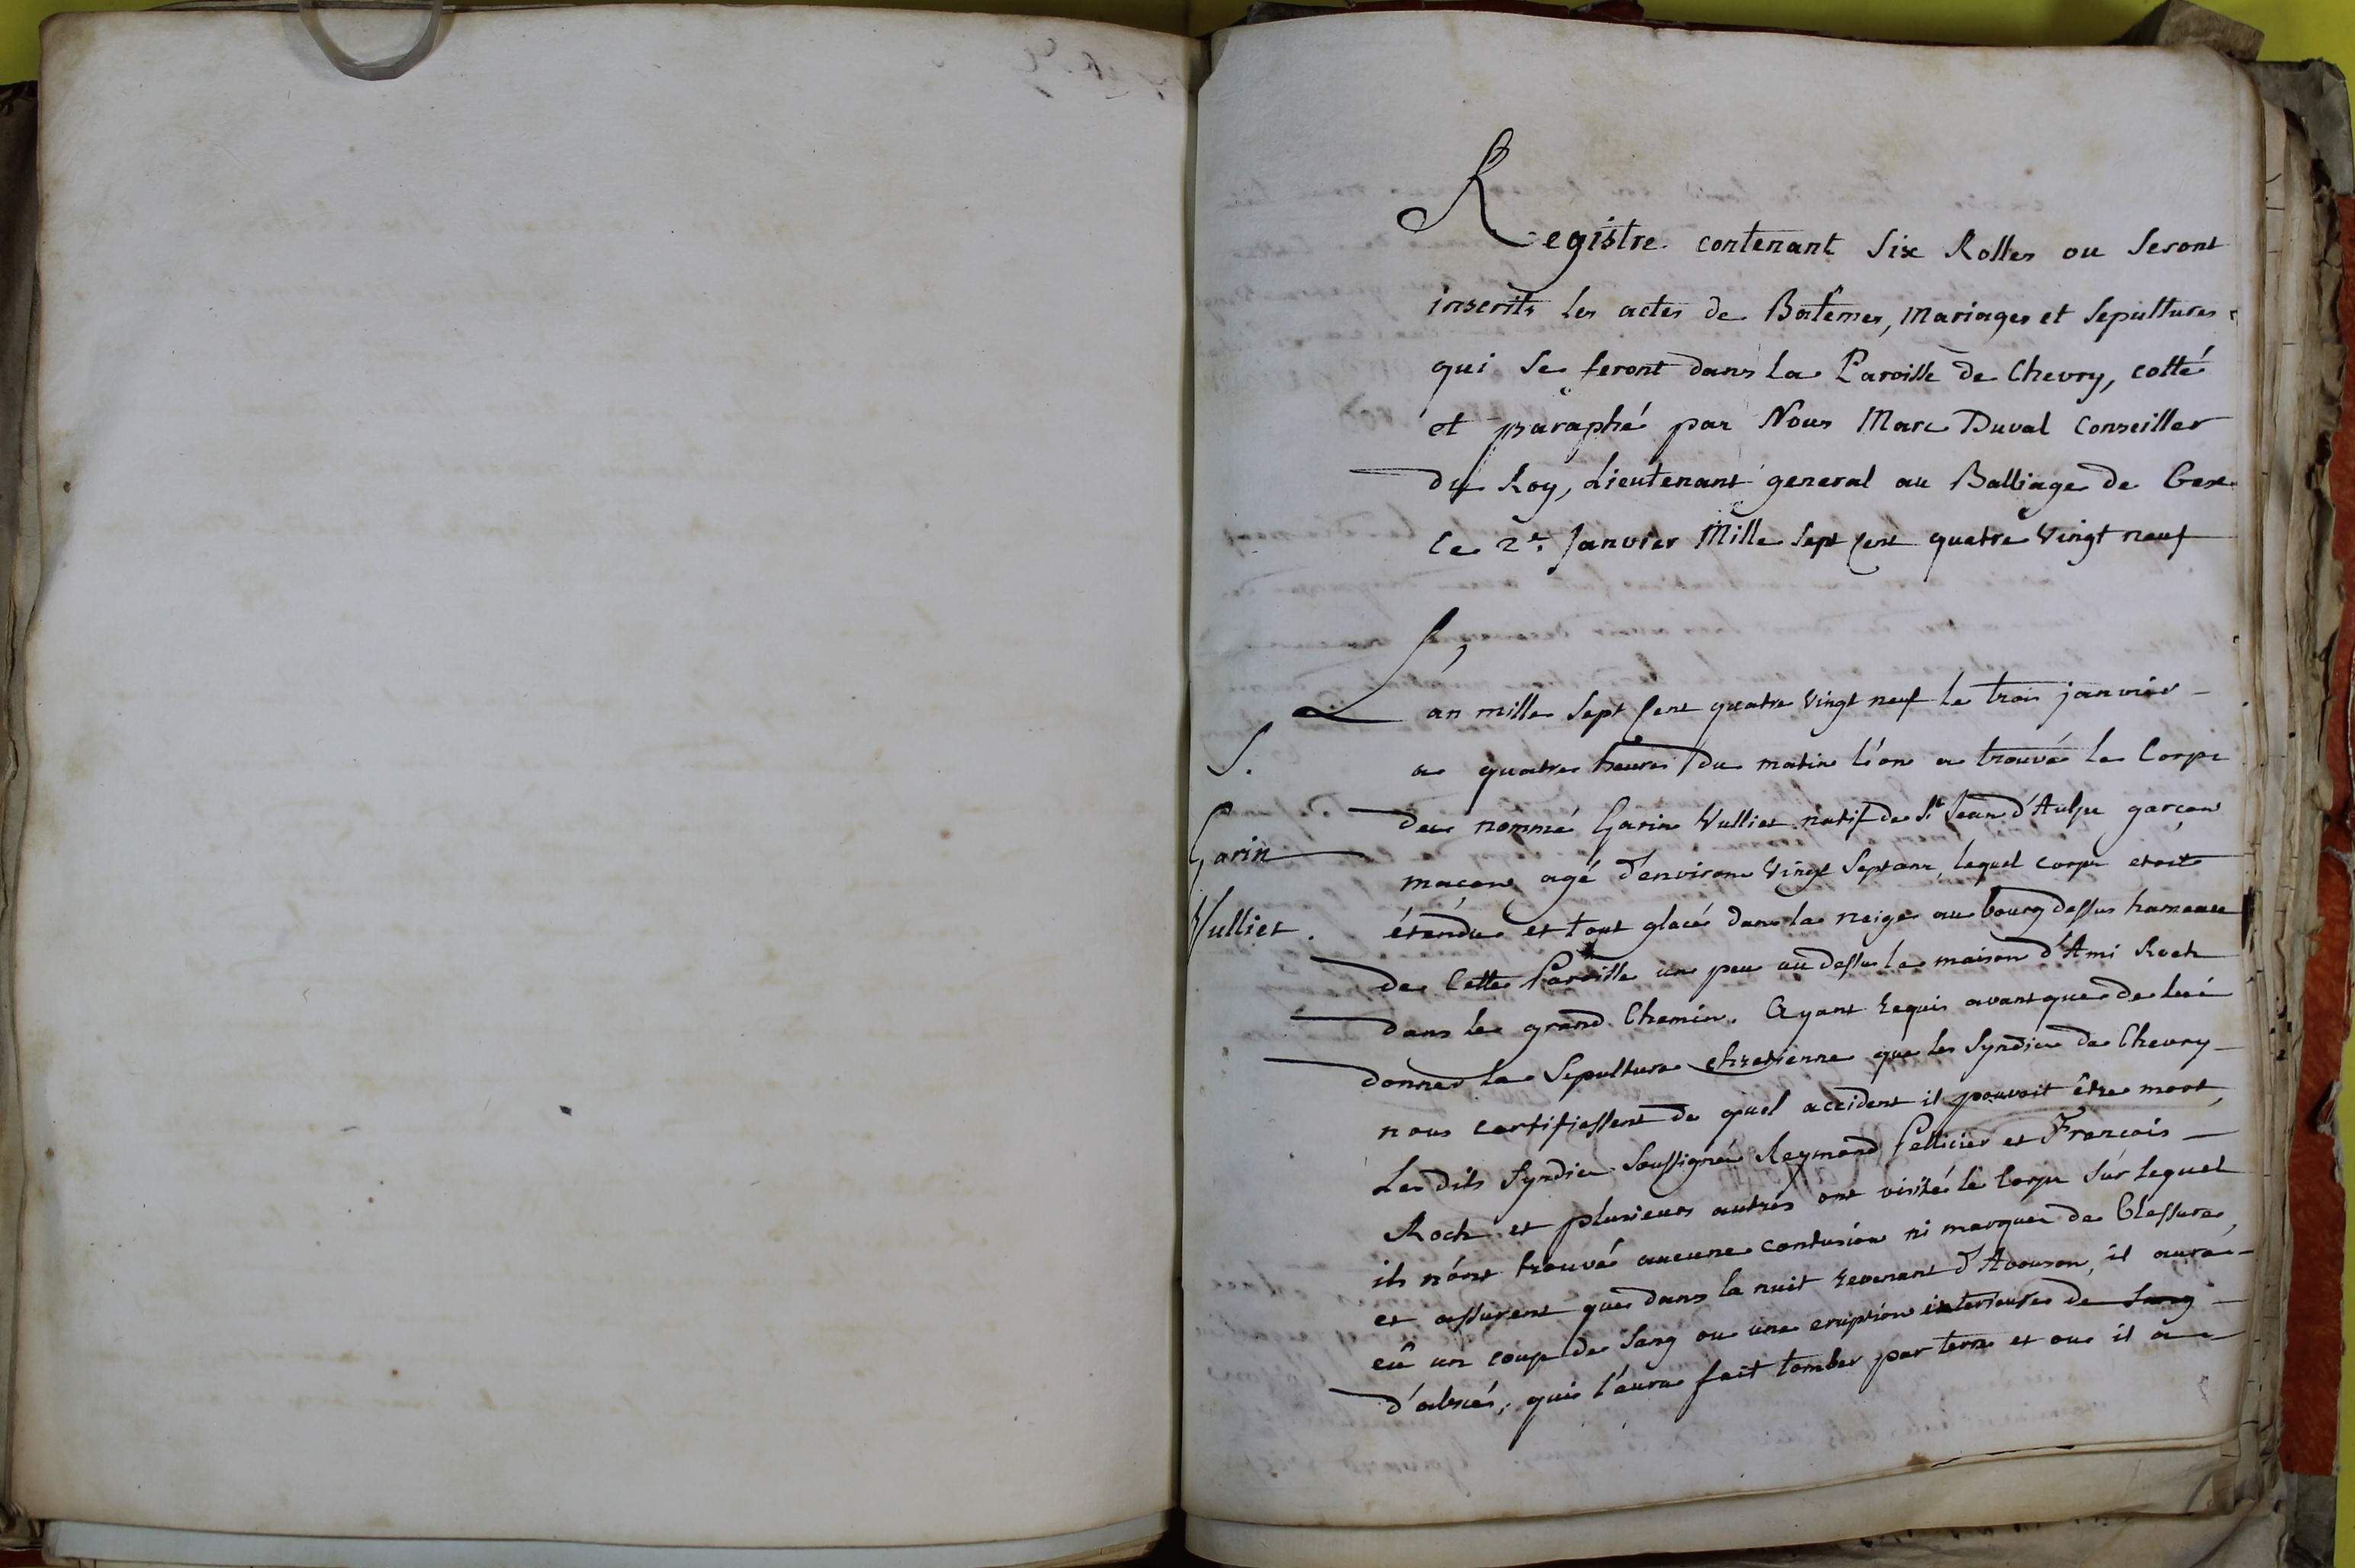 Registre contenant Six Rolles ou Seront
inscrits les actes de Batêmes, Mariages et Sepultures
qui Se feront dans La Paroisse de Chevry, cotté
et paraphé par Nous Marc Duval Conseiller
du Roy, Lieutenant general au Balliage de Gex
Ce 2e. Janvier Mille Sept Cent quatre Vingt neuf
L'an mille Sept Cent quatre Vingt neuf le trois janvier
S.
a quatre heures du matin l'on a trouvé le Corps
du nommé Garin Vulliet natif de St Jean d'Aulps garçon
Garin
maçon agé d'environ Vingt Sept ans, lequel corps etoit
Vulliet.
étendu et tout glacé dans la neige au bourg dessus hameau
de Cette Paroisse un peu au dessus la maison d'Ami Roch
dans le grand Chemin. Ayant requis avant que de lui
donner la Sepulture chretienne que les Syndics de Chevry
nous certifiassent de quel accident il pouvoit être mort,
Les dits Syndics Soussignés Reymond Pellicier et François
Roch et plusieurs autres ont visité le Corps sur lequel
ils n'ont trouvé aucune contusion ni marques de Blessure,
et assurent que dans la nuit revenant d'Avouson, il aura
eû un coup de Sang ou une eruption interieure de Sang
d'abcés, qui l'aura fait tomber par terre et ou il a